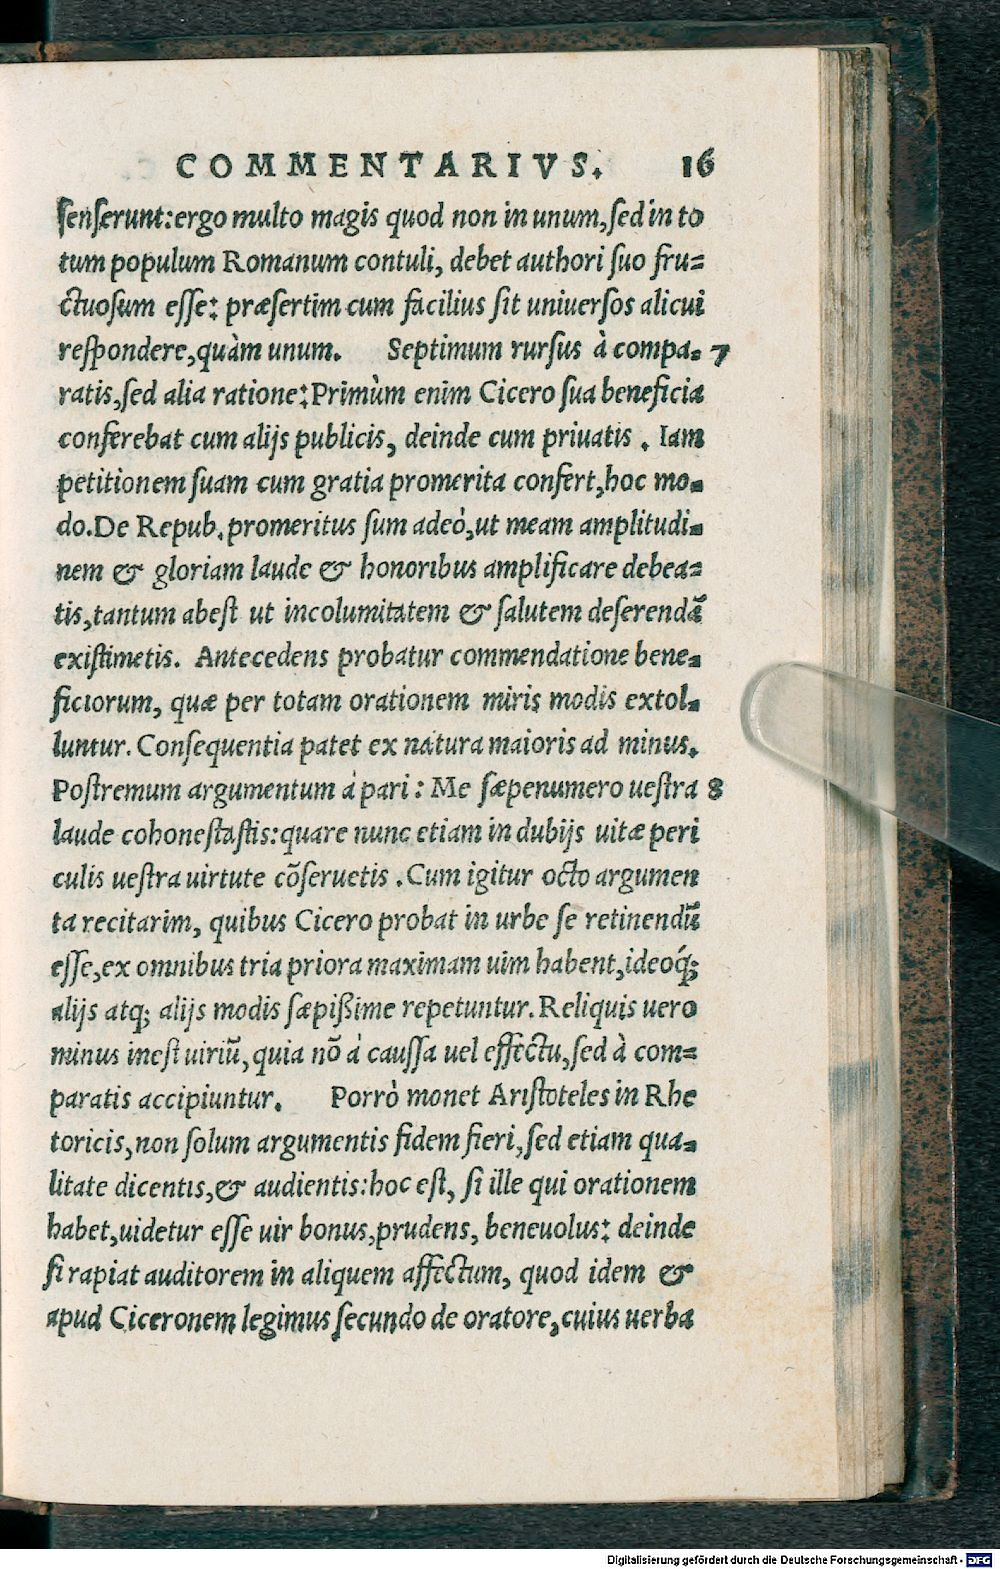 COMMENTARIVS. 16
senserunt: ergo multo magis quod non in unum, sed in to
tum populum Romanum contuli, debet authori suo fru=
ctuosum esse: præsertim cum facilius sit uniuersos alicui
respondere, quàm unum. Septimum rursus à compa= 7
ratis, sed alia ratione: Primùm enim Cicero sua beneficia
conferebat cum alijs publicis, deinde cum priuatis. Iam
petitionem suam cum gratia promerita confert, hoc mo=
do. De Repub. promeritus sum adeò, ut meam amplitudi=
nem & gloriam laude & honoribus amplificare debea=
tis, tantum abest ut incolumitatem & salutem deserendā
existimetis. Antecedens probatur commendatione bene=
ficiorum, quæ per totam orationem miris modis extol=
luntur. Consequentia patet ex natura maioris ad minus.
Postremum argumentum à pari: Me sæpenumero uestra 8
laude cohonestastis: quare nunc etiam in dubijs uitæ peri
culis uestra uirtute cōseruetis. Cum igitur octo argumen
ta recitarim, quibus Cicero probat in urbe se retinendū
esse, ex omnibus tria priora maximam uim habent, ideoq́;
alijs atq; alijs modis sæpißime repetuntur. Reliquis uero
minus inest uiriū, quia nō à caussa uel effectu, sed à com=
paratis accipiuntur. Porrò monet Aristoteles in Rhe
toricis, non solum argumentis fidem fieri, sed etiam qua=
litate dicentis, & audientis: hoc est, si ille qui orationem
habet, uidetur esse uir bonus, prudens, beneuolus: deinde
si rapiat auditorem in aliquem affectum, quod idem &
apud Ciceronem legimus secundo de oratore, cuius uerba
Digitalisierung gefördert durch die Deutsche Forschungsgemeinschaft - DFG